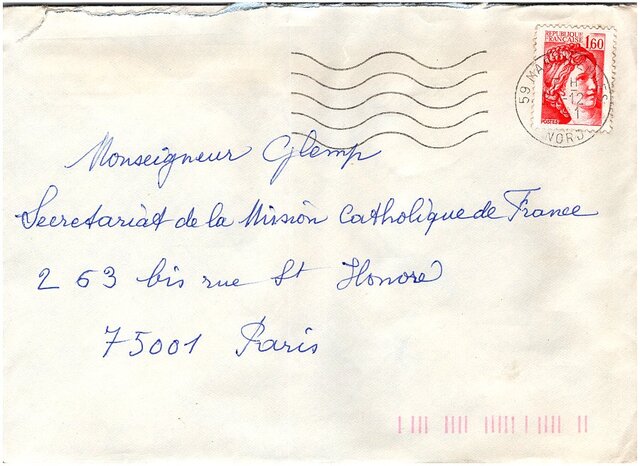 REPUBLIQUE
FRANÇAISE
1,60
POSTES
59 MA
H
-12
1
NORD
Monseigneur Glemp
Secretariat de la Mission Catholique de France
263 bis rue St Honoré
75001 Paris